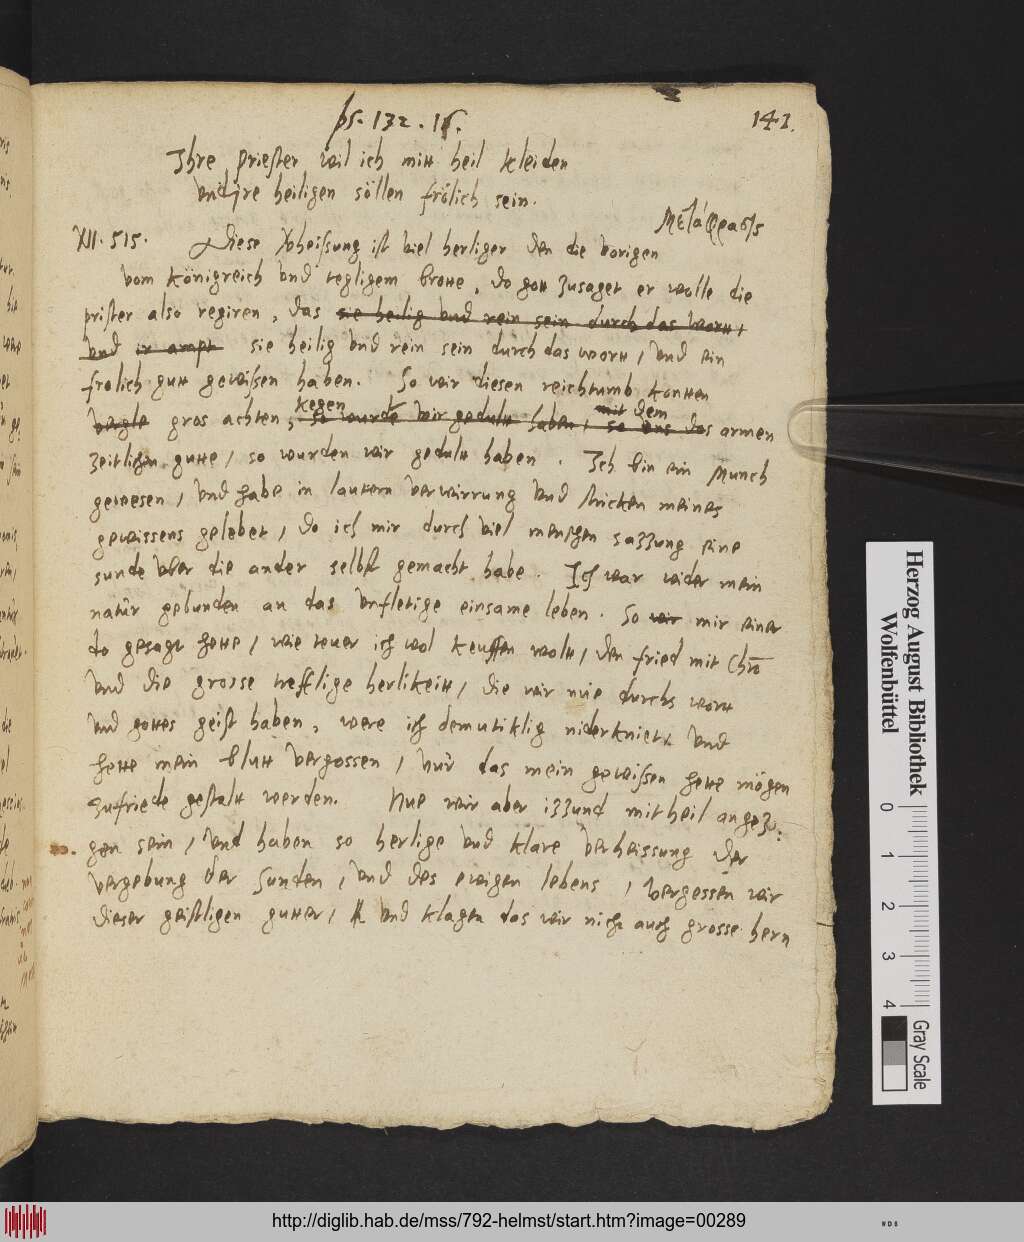 ps. 132. 16.
141.
Ihre priester wil ich mitt heil kleiden
und ire heiligen söllen frölich sein.
μετάφρασις
XII. 515. Diese verheissung ist viel herliger den die vorigen
vom königreich und tegligem brotte, do gott zusaget er wolle die
prister also regiren, das sie heilig und rein sein durch das wortt,
und ir ampt sie heilig und rein sein durch das wortt, und ein
frolich gutt gewissen haben. So wir diesen reichtumb kontten
gros achten, kegen so wurde wir gedultt haben, so uns mit dem das armen
zeitlichen gutte, so wurden wir gedult haben. Ich bin ein Munch
gewesen, und habe in lauttern verwirrung und stricken meines
gewissens gelebet, do ich mir durch viel menschen sazzung eine
sunde uber die ander selbst gemacht habe. Ich war wider mein
natur gebunden an das unfletige einsame leben. So wir mir einer
do gesagt hette, wie teuer ich wol keuffen woltt, den fried mit Chro
und die grosse trefflige herlikeitt, die wir nue durchs wortt
und gottes geist haben, were ich demutiklig niderkniet, und
hette mein blutt vergossen, nur das mein gewissen hette mögen
zufriede gestaltt werden. Nue wir aber izzund mit heil angezo:
gen sein, und haben so herlige und klare verheissung der
vergebung der sunden, und des ewigen lebens, vergessen wir
dieser geistligen gutter, und klagen das wir nicht auch grosse hern
Herzog August Bibliothek
Wolfenbüttel
0 1 2 3 4
Gray Scale
http://diglib.hab.de/mss/792-helmst/start.htm?image=00289